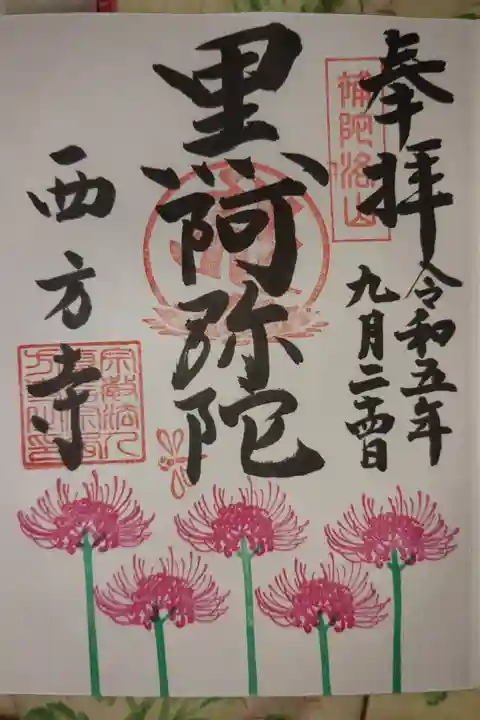 奉拝
補陀洛山
令和五年
九月二十四日
黒阿弥陀
西方寺